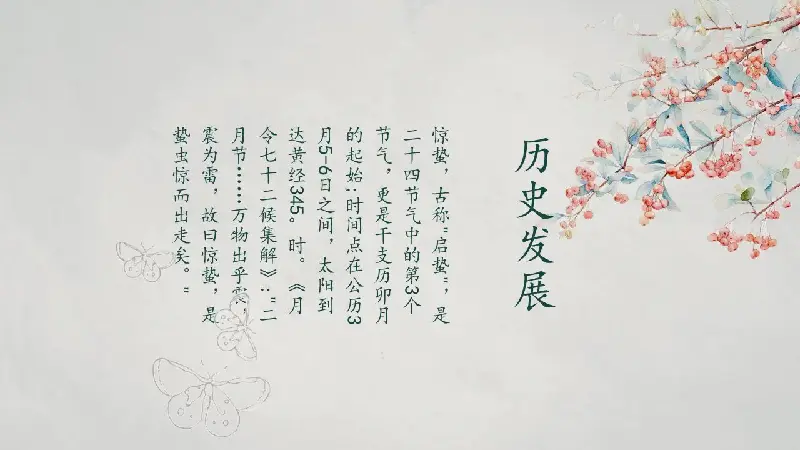 历史发展
惊蛰，古称"启蛰"，是
二十四节气中的第3个
节气，更是干支历卯月
的起始;时间点在公历3
月5-6日之间，太阳到
达黄经345。时。《月
令七十二候集解》:"二
月节……万物出乎震，
震为雷，故曰惊蛰，是
蛰虫惊而出走矣。"